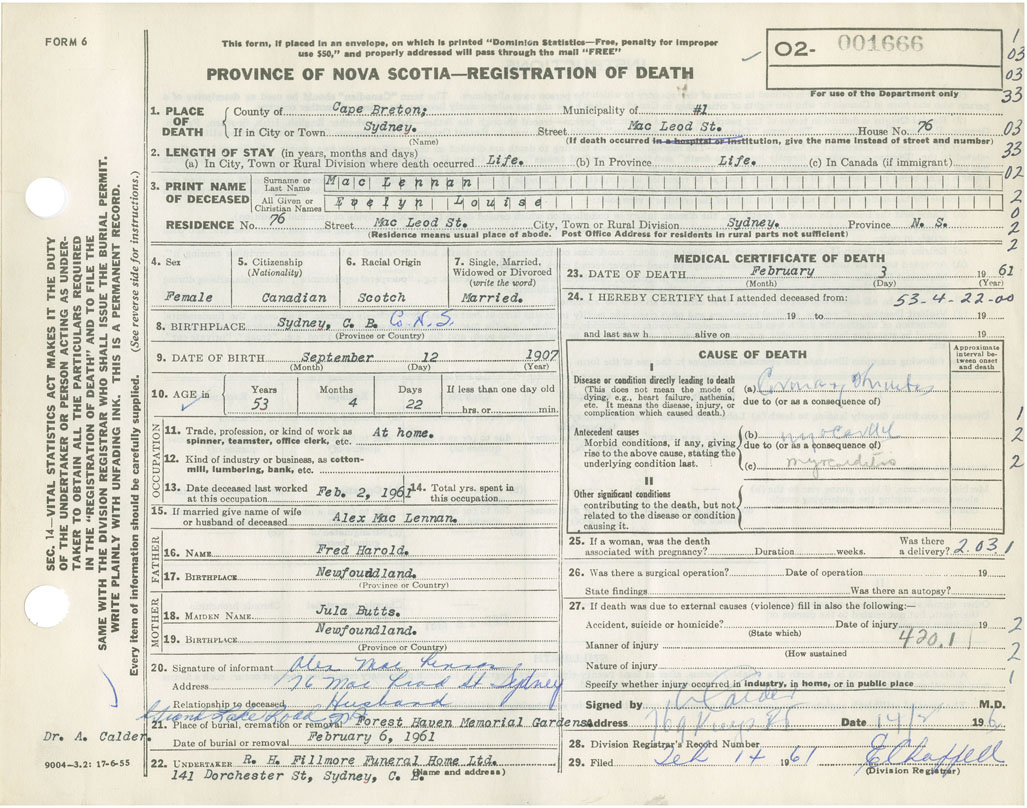 FORM 6
This form, if placed in an envelope, on which is printed "Dominion Statistics—Free, penalty for improper
use $50," and properly addressed will pass through the mail "FREE"
PROVINCE OF NOVA SCOTIA—REGISTRATION OF DEATH
O2- 001666
For use of the Department only
1
03
03
33
03
33
02
2
0
2
2
1. PLACE OF DEATH
County of Cape Breton; Municipality of #1
If in City or Town Sydney. Street Mac Leod St. House No. 76
(Name) (If death occurred in a hospital or institution, give the name instead of street and number)
2. LENGTH OF STAY (in years, months and days)
(a) In City, Town or Rural Division where death occurred Life. (b) In Province Life. (c) In Canada (if immigrant)
3. PRINT NAME OF DECEASED
Surname or Last Name Mac Lennan
All Given or Christian Names Evelyn Louise
RESIDENCE No. 76 Street Mac Leod St. City, Town or Rural Division Sydney. Province N. S.
(Residence means usual place of abode. Post Office Address for residents in rural parts not sufficient)
4. Sex
Female
5. Citizenship
(Nationality)
Canadian
6. Racial Origin
Scotch
7. Single, Married,
Widowed or Divorced
(write the word)
Married.
8. BIRTHPLACE Sydney, C. B. Co N.S.
(Province or Country)
9. DATE OF BIRTH September 12 1907
(Month) (Day) (Year)
10. AGE in
Years Months Days If less than one day old
53 4 22 hrs. or min.
OCCUPATION
11. Trade, profession, or kind of work as At home.
spinner, teamster, office clerk, etc.
12. Kind of industry or business, as cotton-
mill, lumbering, bank, etc.
13. Date deceased last worked at this occupation Feb. 2, 1961
14. Total yrs. spent in this occupation
15. If married give name of wife
or husband of deceased Alex Mac Lennan.
FATHER
16. NAME Fred Harold.
17. BIRTHPLACE Newfoundland.
(Province or Country)
MOTHER
18. MAIDEN NAME Jula Butts.
19. BIRTHPLACE Newfoundland.
(Province or Country)
20. Signature of informant Alex Mac Lennan
Address 76 Mac Leod St Sydney
Relationship to deceased Husband
Grand Lake Road
21. Place of burial, cremation or removal Forest Haven Memorial Gardens.
Date of burial or removal February 6, 1961
22. UNDERTAKER R. H. Fillmore Funeral Home Ltd.
141 Dorchester St, Sydney, C. B.
(Name and address)
MEDICAL CERTIFICATE OF DEATH
23. DATE OF DEATH February 3 1961
(Month) (Day) (Year)
24. I HEREBY CERTIFY that I attended deceased from: 53-4-22-00
19 to 19
and last saw h alive on 19
CAUSE OF DEATH
Approximate
interval be-
tween onset
and death
I
Disease or condition directly leading to death
(This does not mean the mode of
dying, e.g., heart failure, asthenia,
etc. It means the disease, injury, or
complication which caused death.)
(a)
due to (or as a consequence of)
Antecedent causes
Morbid conditions, if any, giving
rise to the above cause, stating the
underlying condition last.
(b)
due to (or as a consequence of)
(c) myocarditis
II
Other significant conditions
contributing to the death, but not
related to the disease or condition
causing it.
1
2
2
25. If a woman, was the death
associated with pregnancy? Duration weeks. Was there a delivery? 2.031
26. Was there a surgical operation? Date of operation 19
State findings Was there an autopsy?
27. If death was due to external causes (violence) fill in also the following:—
Accident, suicide or homicide? Date of injury 19
(State which)
Manner of injury 420.1
(How sustained)
Nature of injury
Specify whether injury occurred in industry, in home, or in public place
2
2
1
Signed by Calder M.D.
Address Date 14/2 196
28. Division Registrar's Record Number
29. Filed Feb 14 1961 E Chappell
(Division Registrar)
SEC. 14—VITAL STATISTICS ACT MAKES IT THE DUTY
OF THE UNDERTAKER OR PERSON ACTING AS UNDER-
TAKER TO OBTAIN ALL THE PARTICULARS REQUIRED
IN THE "REGISTRATION OF DEATH" AND TO FILE THE
SAME WITH THE DIVISION REGISTRAR WHO SHALL ISSUE THE BURIAL PERMIT.
WRITE PLAINLY WITH UNFADING INK. THIS IS A PERMANENT RECORD.
Every item of information should be carefully supplied. (See reverse side for instructions.)
Dr. A. Calder.
9004-3.2: 17-6-55